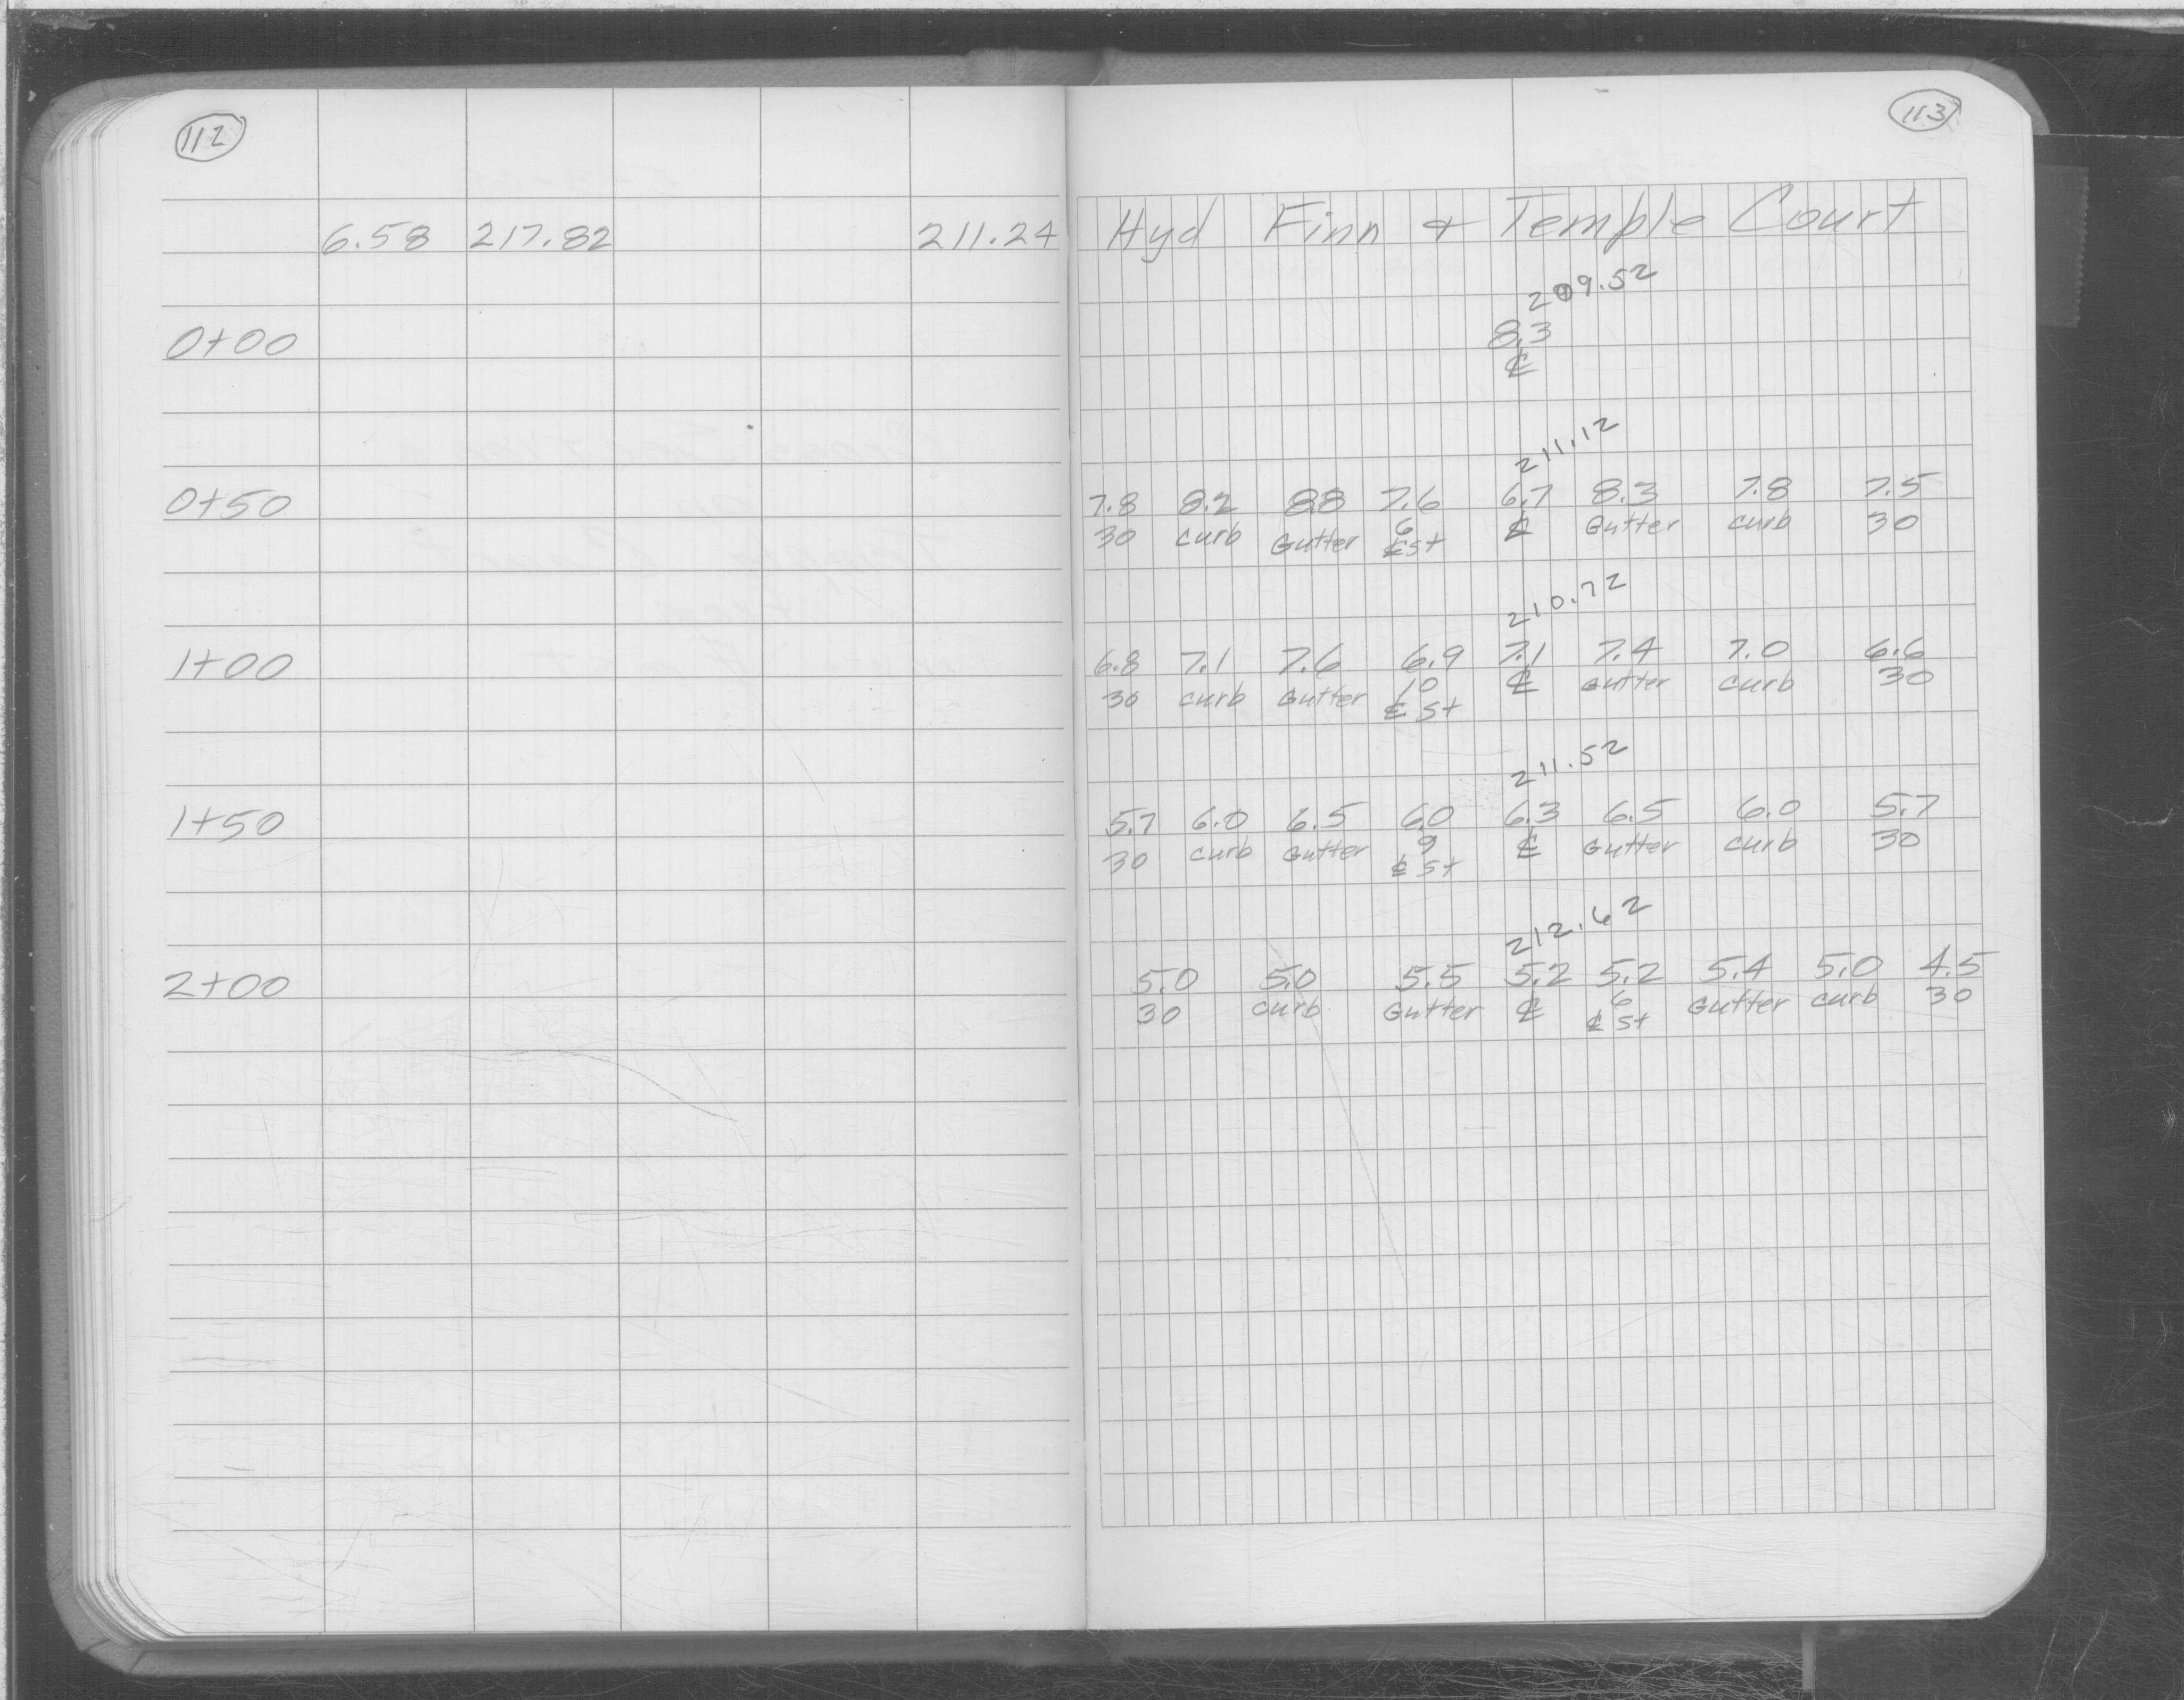 112
6.58 217.82 211.24
0+00
0+50
1+00
1+50
2+00
113
Hyd Finn & Temple Court
209.52
8.3
℄
211.12
7.8 8.2 8.8 7.6 6.7 8.3 7.8 7.5
30 curb Gutter 6 ℄ Gutter curb 30
℄ st
210.72
6.8 7.1 7.6 6.9 7.1 7.4 7.0 6.6
30 curb Gutter 10 ℄ Gutter curb 30
℄ st
211.52
5.7 6.0 6.5 6.0 6.3 6.5 6.0 5.7
30 curb Gutter 9 ℄ Gutter curb 30
℄ st
212.62
5.0 5.0 5.5 5.2 5.2 5.4 5.0 4.5
30 curb Gutter ℄ 6 Gutter curb 30
℄ st